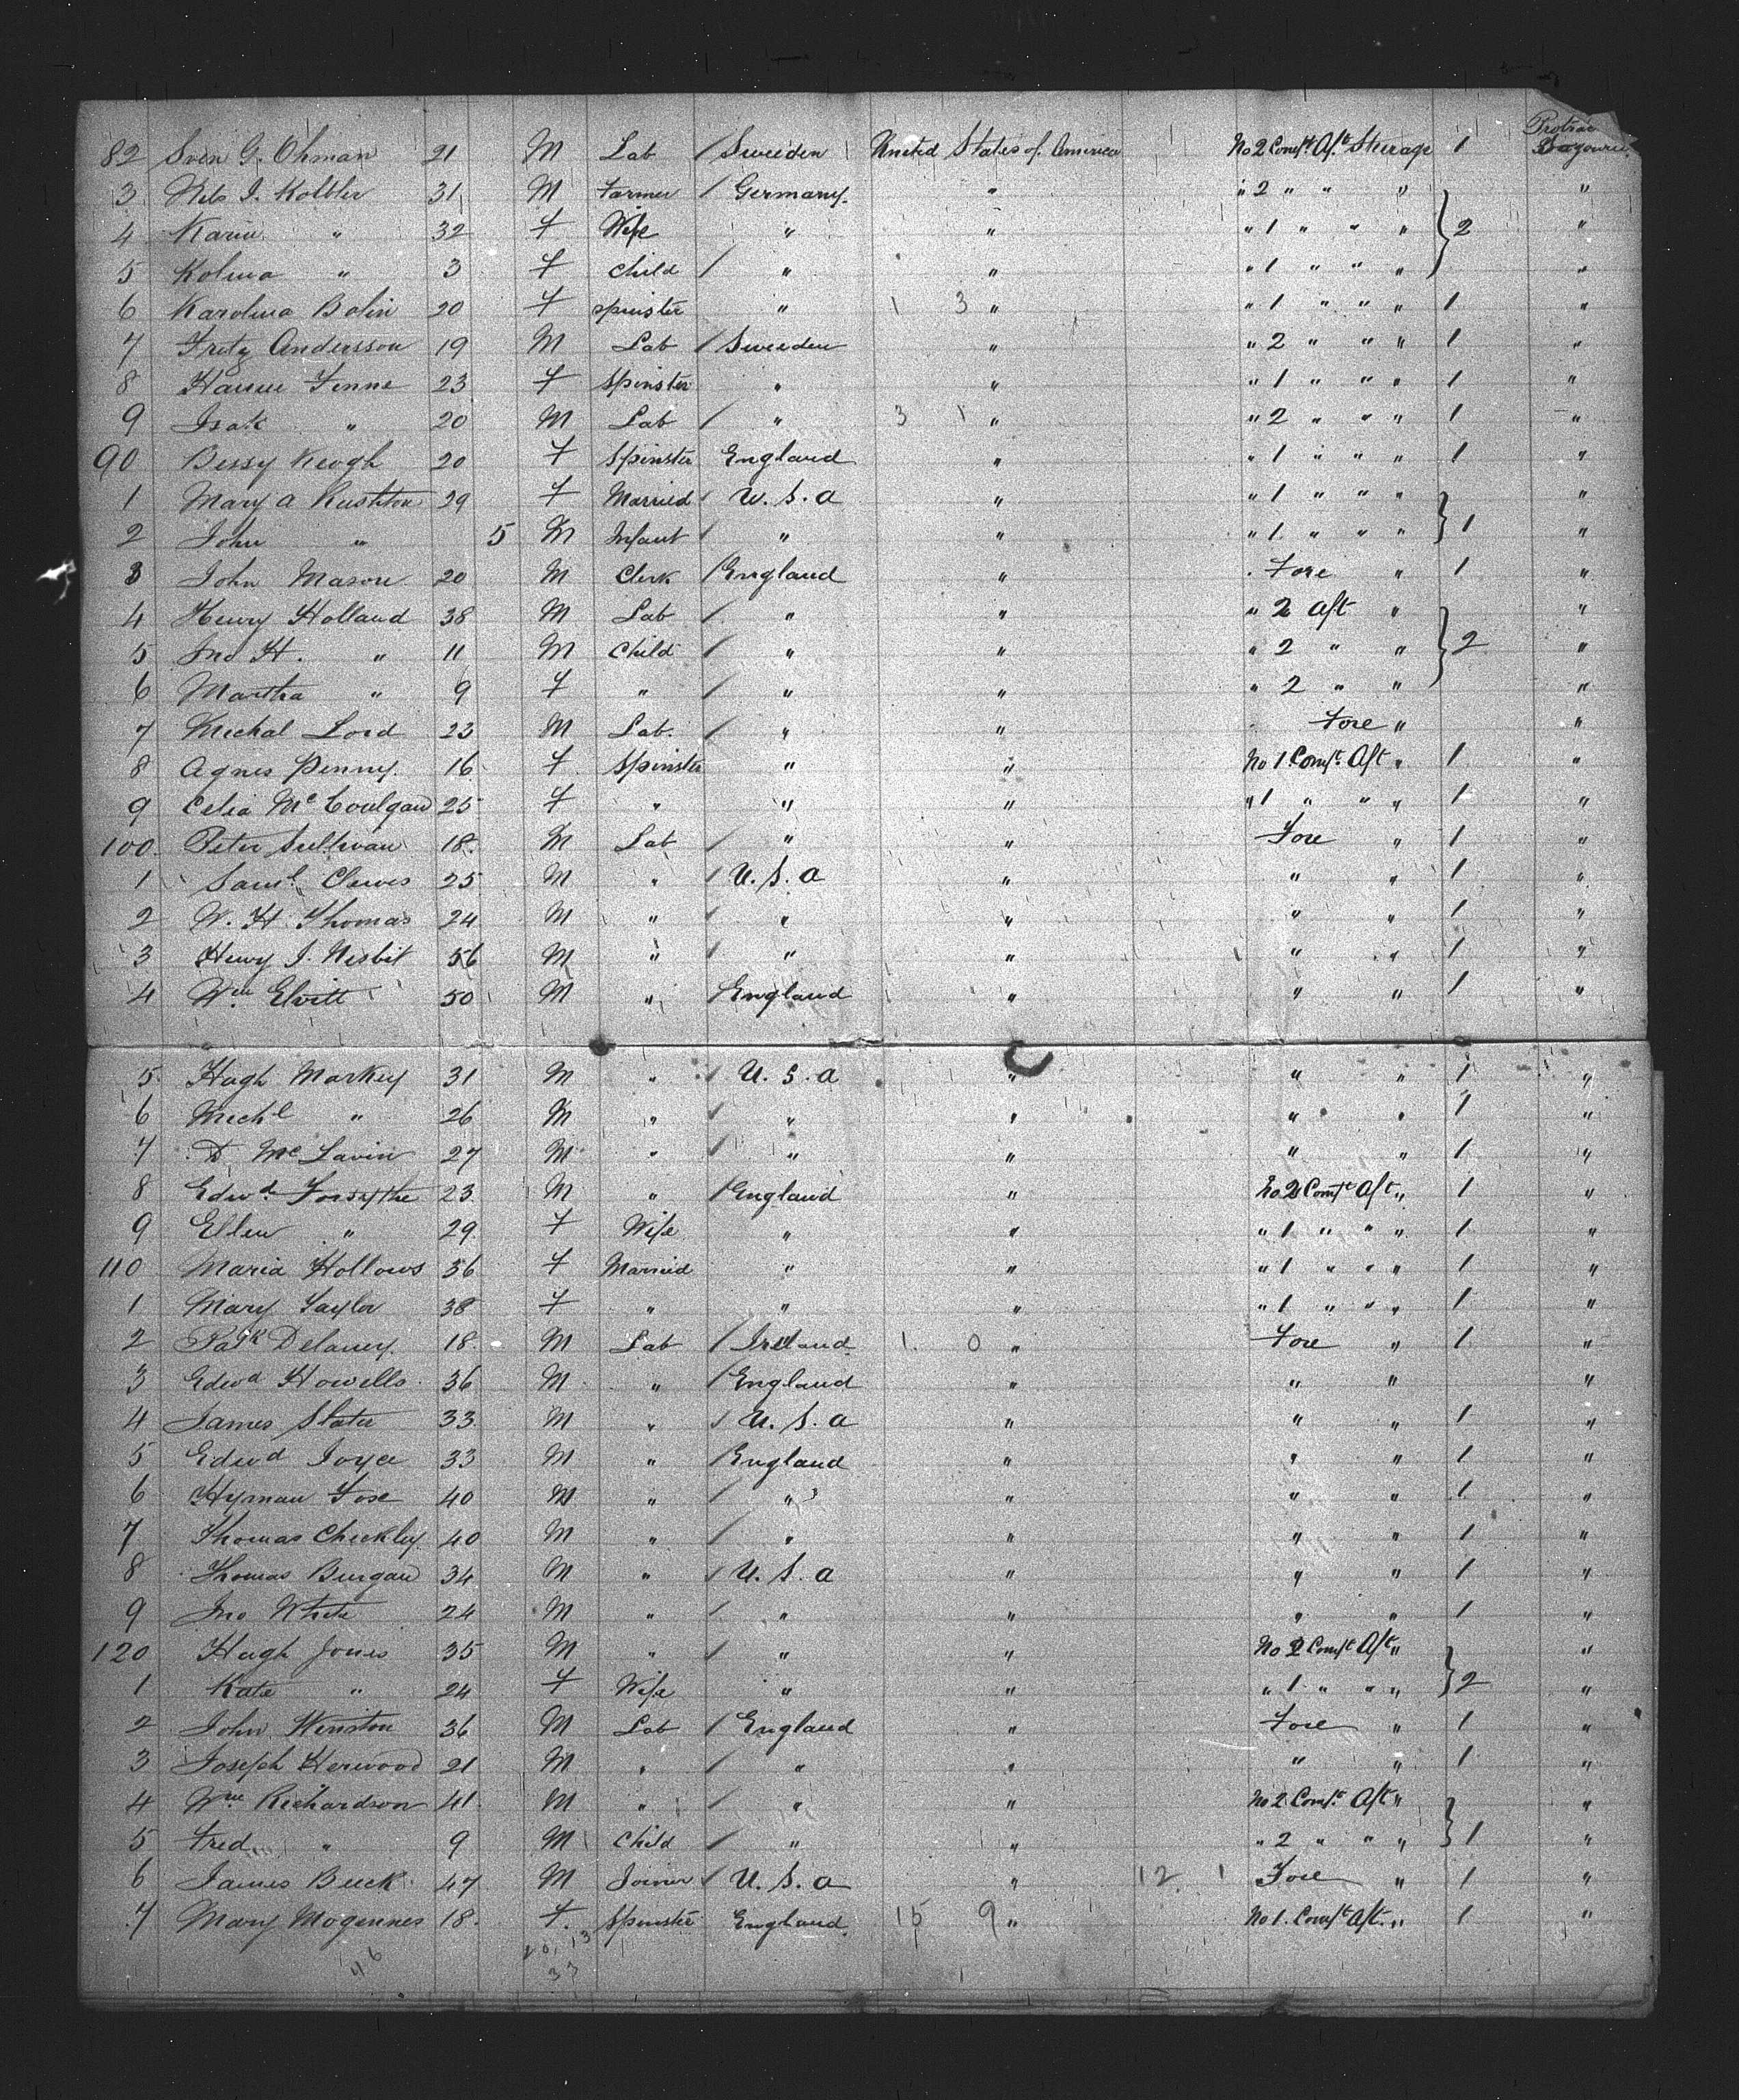 82 Sven G. Ohman 21 M Lab / Sweeden United States of America No 2 Compt. Aft. Sterage 1
3 Nils I. Kolbler 31 M Farmer / Germany. " " 2 " " " "
4 Karin " 32 F Wife " " " 1 " " " } 2 "
5 Kolma " 3 F Child / " " " 1 " " " "
6 Karolina Bolin 20 F Spinster " 1 3 " " 1 " " " 1 "
7 Fritz Andersson 19 M Lab / Sweeden " " 2 " " " 1 "
8 Fenne 23 F Spinster " " " 1 " " " 1 "
9 Isak " 20 M Lab / " 3 1 " " 2 " " " 1 "
90 Bessy Keogh 20 F Spinster England " " 1 " " " 1 "
1 Mary A Rushton 29 F Married U. S. A " " 1 " " " "
2 John " 5 M Infant / " " " 1 " " " } 1 "
3 John Mason 20 M Clerk / England " Fore " 1 "
4 Henry Holland 38 M Lab / " " " 2 Aft " "
5 Jno H. " 11 M Child / " " " 2 " " } 2 "
6 Martha " 9 F " / " " " 2 " " "
7 Michal Lord 23 M Lab. / " " Fore " "
8 Agnes Penny. 16 F Spinster " " No 1 Compt. Aft " 1 "
9 Celia Mc Coulgan 25 F " " " " 1 " " " 1 "
100 Peter Sullivan 18 M Lab / " " Fore " 1 "
1 Saml. Clewes 25 M " / U. S. A " " " 1 "
2 W. H. Thomas 24 M " / " " " " 1 "
3 Henry J. Nisbit 56 M " / " " " " 1 "
4 Wm Elvitt 50 M " / England " " " 1 "
5 Hugh Markey 31 M " / U. S. A " " " 1 "
6 Michl " 26 M " / " " " " 1 "
7 D Mc Lavin 27 M " / " " " " 1 "
8 Edwd Forsythe 23 M " / England " No 2 Compt Aft. " 1 "
9 Ellen " 29 F Wife " " " 1 " " " 1 "
110 Maria Hollows 36 F Married " " " 1 " " " 1 "
1 Mary Taylor 38 F " " " " 1 " " " 1 "
2 Patk Delaney 18 M Lab / Ireland 1 0 " Fore " 1 "
3 Edwd Howells 36 M " / England " " " "
4 James Slater 33 M " / U. S. A " " " 1 "
5 Edwd Joyce 33 M " / England " " " 1 "
6 Hyman Fose 40 M " / " " " " 1 "
7 Thomas Checkley 40 M " / " " " " 1 "
8 Thomas Burgan 34 M " / U. S. A " " " 1 "
9 Jno White 24 M " / " " " " 1 "
120 Hugh Jones 35 M " / " " No 2 Compt Aft " "
1 Kate " 24 F Wife " " " 1 " " " } 2 "
2 John Winston 36 M Lab / England " Fore " 1 "
3 Joseph Herwood 21 M " / " " " " 1 "
4 Wm Richardson 41 M " / " " No 2 Compt. Aft " "
5 Fred " 9 M Child / " " " 2 " " " } 1 "
6 James Beck 47 M Joiner / U. S. A " 12 1 Fore " 1 "
7 Mary Mogennes 18 F. Spinster England 15 9 " No 1. Compt Aft. " 1 "
46 20, 13
33